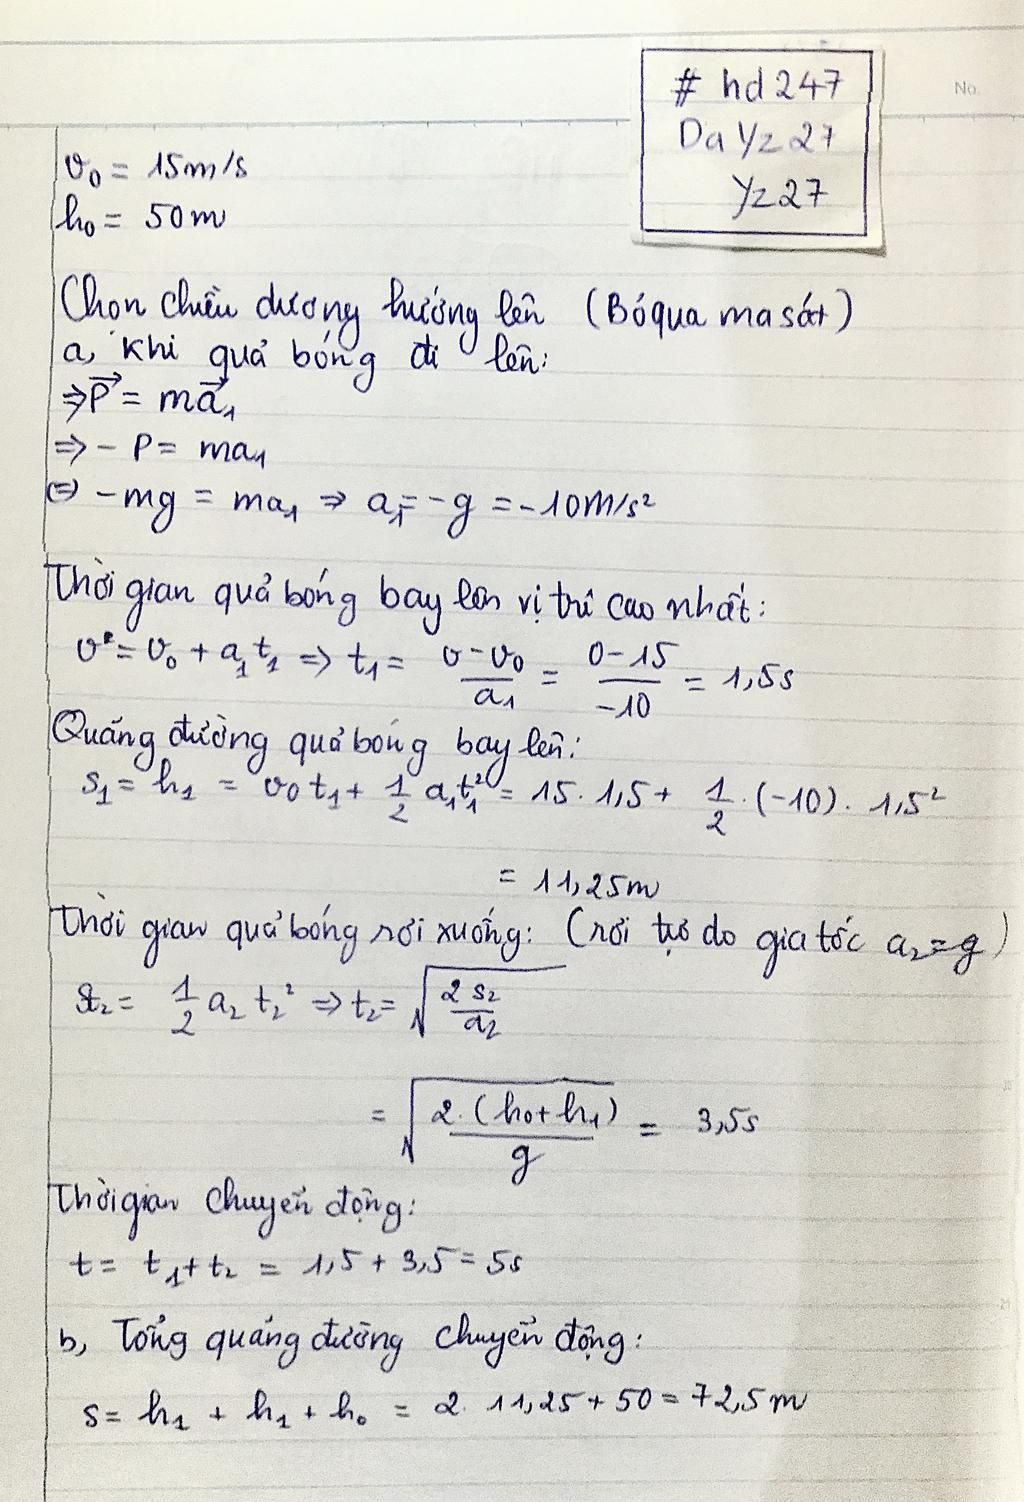 # hd247
Da Yz27
Yz27
No.
v₀ = 15m/s
h₀ = 50m
Chọn chiều dương hướng lên (Bỏ qua ma sát)
a, Khi quả bóng đi lên:
⇒ P⃗ = ma⃗₁
⇒ - P = ma₁
⇔ -mg = ma₁ ⇒ a₁ = -g = -10m/s²
Thời gian quả bóng bay lên vị trí cao nhất:
v = v₀ + a₁t₁ ⇒ t₁ = (v - v₀)/a₁ = (0 - 15)/(-10) = 1,5s
Quãng đường quả bóng bay lên:
s₁ = h₁ = v₀t₁ + 1/2 a₁t₁² = 15. 1,5 + 1/2 . (-10). 1,5²
= 11,25m
Thời gian quả bóng rơi xuống: (rơi tự do gia tốc a₂ = g)
s₂ = 1/2 a₂ t₂² ⇒ t₂ = √(2s₂/a₂)
= √(2.(h₀+h₁)/g) = 3,5s
Thời gian chuyển động:
t = t₁ + t₂ = 1,5 + 3,5 = 5s
b, Tổng quãng đường chuyển động:
s = h₁ + h₁ + h₀ = 2. 11,25 + 50 = 72,5m